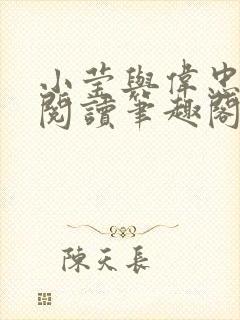 小莹與偉忠
閱讀筆趣閣
陳天長